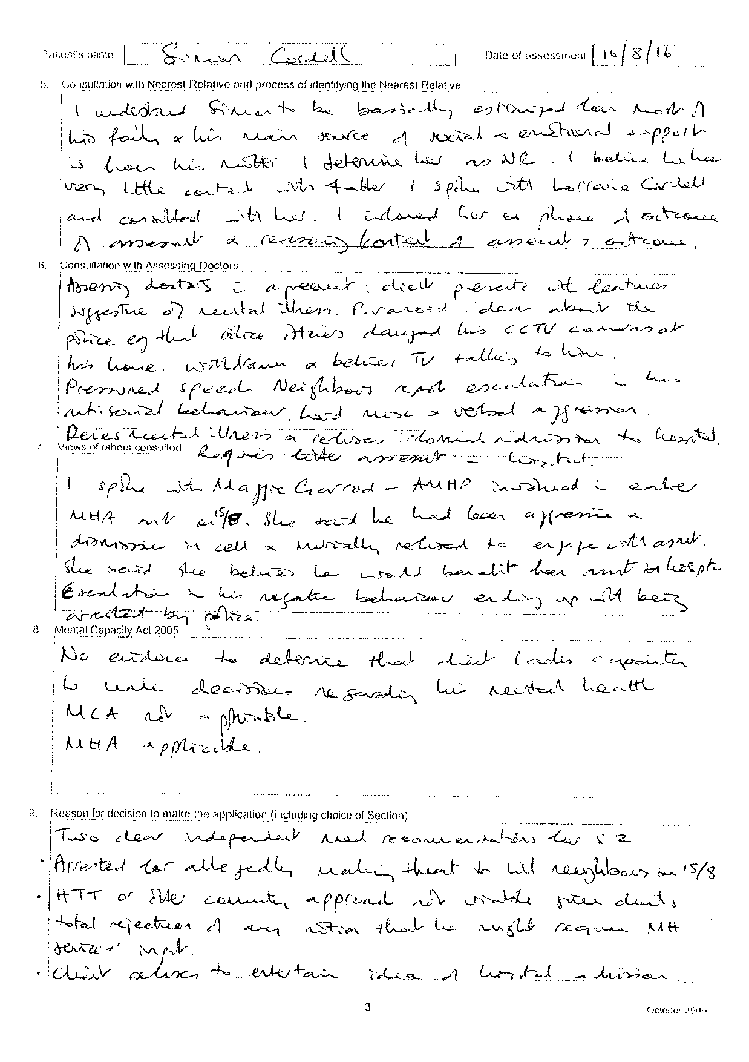 Patient's name Simon Cordell Date of assessment 16/8/16
5. Consultation with Nearest Relative and process of identifying the Nearest Relative
I understand Simon to be basically estranged from most of
his family & his main source of social & emotional support
is from his mother I determine her as NR. I believe he has
very little contact with father I spoke with Lorraine Cordell
and consulted with her. I informed her on phone of outcome
of assessment &
6. Consultation with Assessing Doctors
Assessing doctors in agreement: client presents with features
suggestive of mental illness. Paranoid ideas about the
police eg that police officers damaged his CCTV cameras at
his home. withdrawn & believes TV talking to him.
Pressured speech. Neighbours report escalation in his
antisocial behaviour, loud noise & verbal aggression.
Denies mental illness & refuses informal admission to hospital.
7. Views of others consulted Requires further assessment in hospital
I spoke with Maggie Garrod - AMHP involved in earlier
MHA asst on 15/8. She said he had been aggressive &
dismissive in cell & initially refused to engage with asst.
She said she believes he would benefit from asst in hospital
Escalation in his negative behaviour ending up with being
arrested by police.
8. Mental Capacity Act 2005
No evidence to determine that client lacks capacity
to make decisions regarding his mental health
MCA not applicable.
MHA applicable.
9. Reason for decision to make the application (including choice of Section)
Two clear independent med recommendations for s 2
• Arrested for allegedly making threat to kill neighbours on 15/8
• HTT or other community approach not viable given clients
total rejection of any notion that he might require MH
services' input.
• Client refuses to entertain idea of hospital admission
3
October 2008